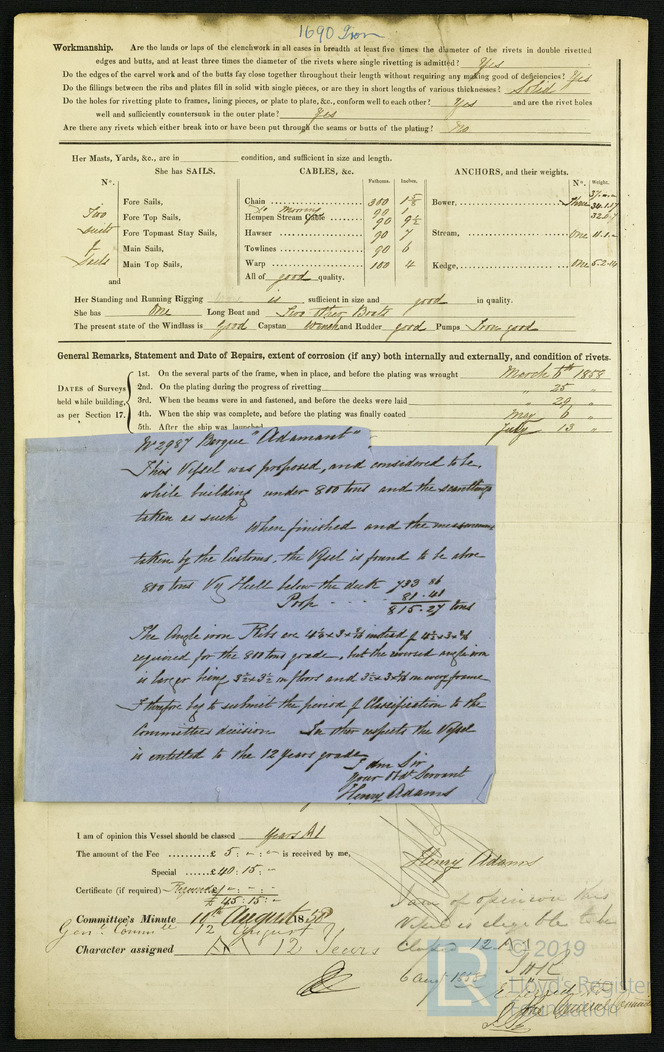 1690 Iron
Workmanship. Are the lands or laps of the clenchwork in all cases in breadth at least five times the diameter of the rivets in double rivetted
edges and butts, and at least three times the diameter of the rivets where single rivetting is admitted? Yes
Do the edges of the carvel work and of the butts fay close together throughout their length without requiring any making good of deficiencies? Yes
Do the fillings between the ribs and plates fill in solid with single pieces, or are they in short lengths of various thicknesses? Solid
Do the holes for rivetting plate to frames, lining pieces, or plate to plate, &c., conform well to each other? Yes and are the rivet holes
well and sufficiently countersunk in the outer plate? Yes
Are there any rivets which either break into or have been put through the seams or butts of the plating? No
Her Masts, Yards, &c., are in condition, and sufficient in size and length.
She has SAILS. CABLES, &c. ANCHORS, and their weights.
No. Fathoms. Inches. No. Weight.
Fore Sails, Chain 300 1 5/8 Bower, Three
Two Fore Top Sails, Hempen Stream Cable 90 9½
suits Fore Topmast Stay Sails, Hawser 90 7 Stream, One 11.1.-
Main Sails, Towlines 90 6
Main Top Sails, Warp 100 4 Kedge, One 5.2.14
and All of good quality.
Her Standing and Running Rigging is sufficient in size and good in quality.
She has One Long Boat and Two Other Boats
The present state of the Windlass is Good Capstan Winch and Rudder good Pumps Iron good
General Remarks, Statement and Date of Repairs, extent of corrosion (if any) both internally and externally, and condition of rivets.
DATES of Surveys held while building, as per Section 17.
1st. On the several parts of the frame, when in place, and before the plating was wrought March 6th 1858
2nd. On the plating during the progress of rivetting " 25 "
3rd. When the beams were in and fastened, and before the decks were laid " 29 "
4th. When the ship was complete, and before the plating was finally coated May 6 "
5th. After the ship was launched July 13 "
No 2987 Barque "Adamant"
This Vessel was proposed, and considered to be,
while building under 800 tons and the scantlings
taken as such
When finished and the measurement
taken by the Customs, the Vessel is found to be above
800 tons Viz Hull below the deck 733 86
Poop 81.41
815.27 tons
The Angle iron Ribs are instead of
required for the 800 tons grade, but the reversed angle iron
is larger being 3½ x 3½ in floors and on every frame
I therefore beg to submit the period of Classification to the
Committees decision In other respects the Vessel
is entitled to the 12 Years grade
I am Sir
your Obdt Servant
Henry Adams
I am of opinion this Vessel should be classed Years A1
The amount of the Fee £ 5 : - : - is received by me,
Special £40 : 15 : - Henry Adams
Certificate (if required)
£ 45 : 15 : -
I am of opinion this
Vessel is eligible to be
Classed 12 A 1
Committee's Minute 10th August 1858
Genl. Committee 12 August
Character assigned A1 12 Years
6 Augt 1858
© 2019
LR
Lloyd's Register
Foundation